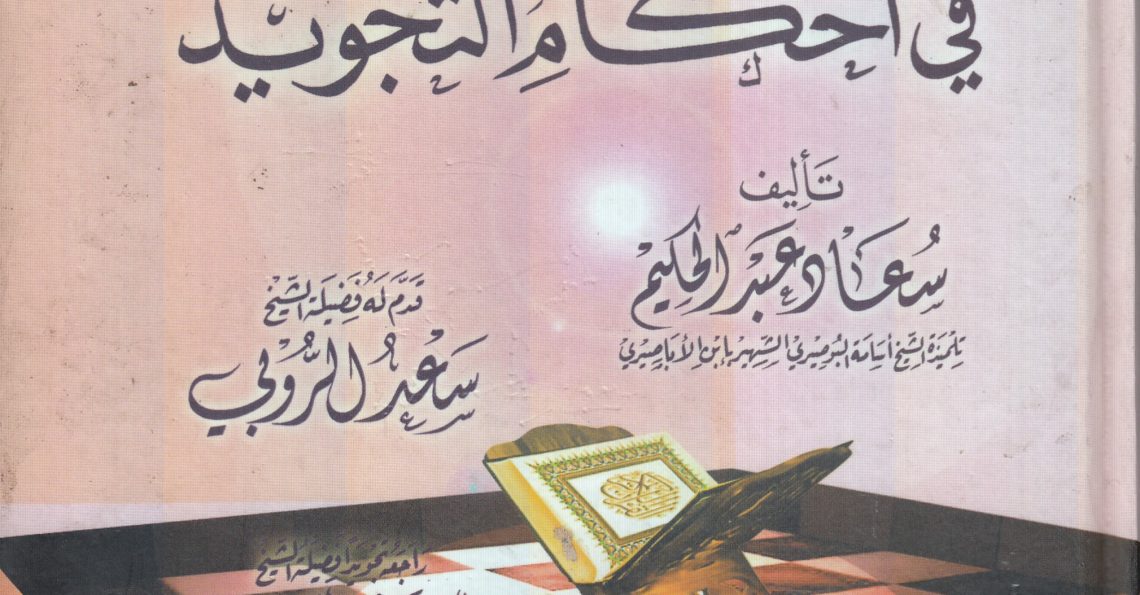 في أحكام التجويد
تأليف
سعاد عبد الحكيم
تلميذة الشيخ أسامة البوصيري الشهير بابن الأباصيري
قدم له فضيلة الشيخ
سعد الروبي
راجعه تجويدا فضيلة الشيخ